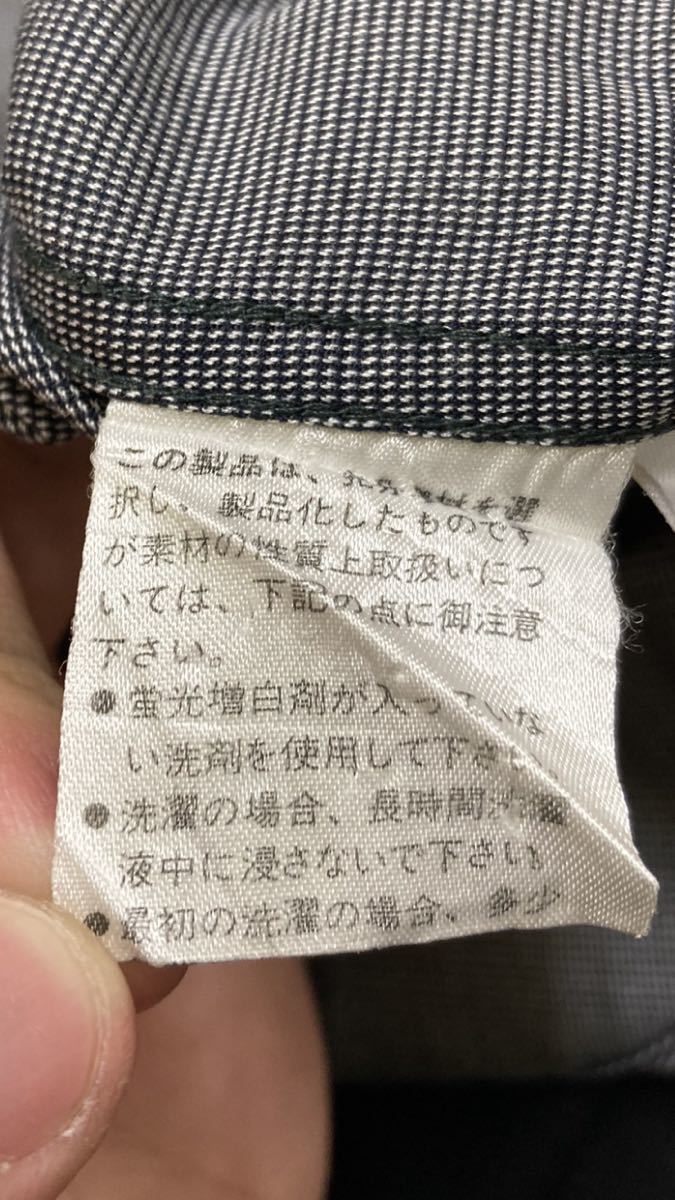 この製品は、 を選
択し、製品化したものです
が素材の性質上取扱いにつ
いては、下記の点に御注意
下さい。
●蛍光増白剤が入っていな
い洗剤を使用して下さい。
●洗濯の場合、長時間洗濯
液中に浸さないで下さい。
●最初の洗濯の場合、多少